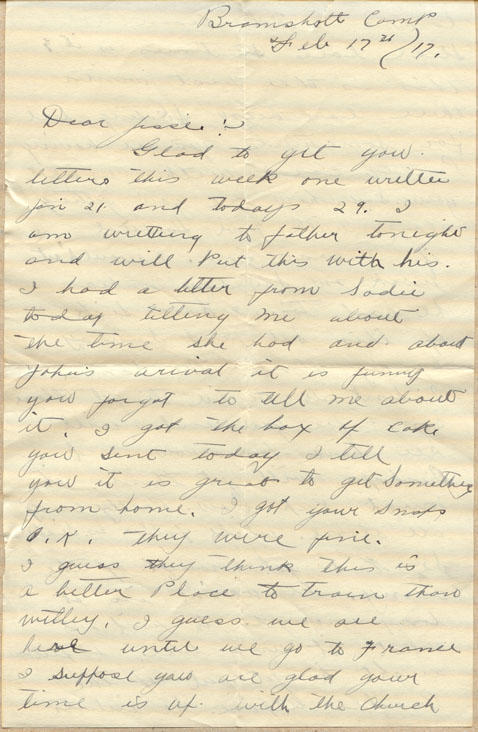 Bramshott Camp
Feb 17 /17.
Dear Jssie :-
Glad to get you
letters this week one writte
Jan 21 and todays 29. I
am writting to father tonight
and will Put this with his.
I had a letter from Sadie
today telling me about
the time she had and about
John's arival it is funny
you forgot to tell me about
it. I got the box of cake
you sent today I tell
you it is great to get Something
from home. I got your Snaps
O.K. They were fine.
I guess they think this is
a better Place to train than
witley. I guess we are
here until we go to France
I Suppose you are glad your
time is up with the Church